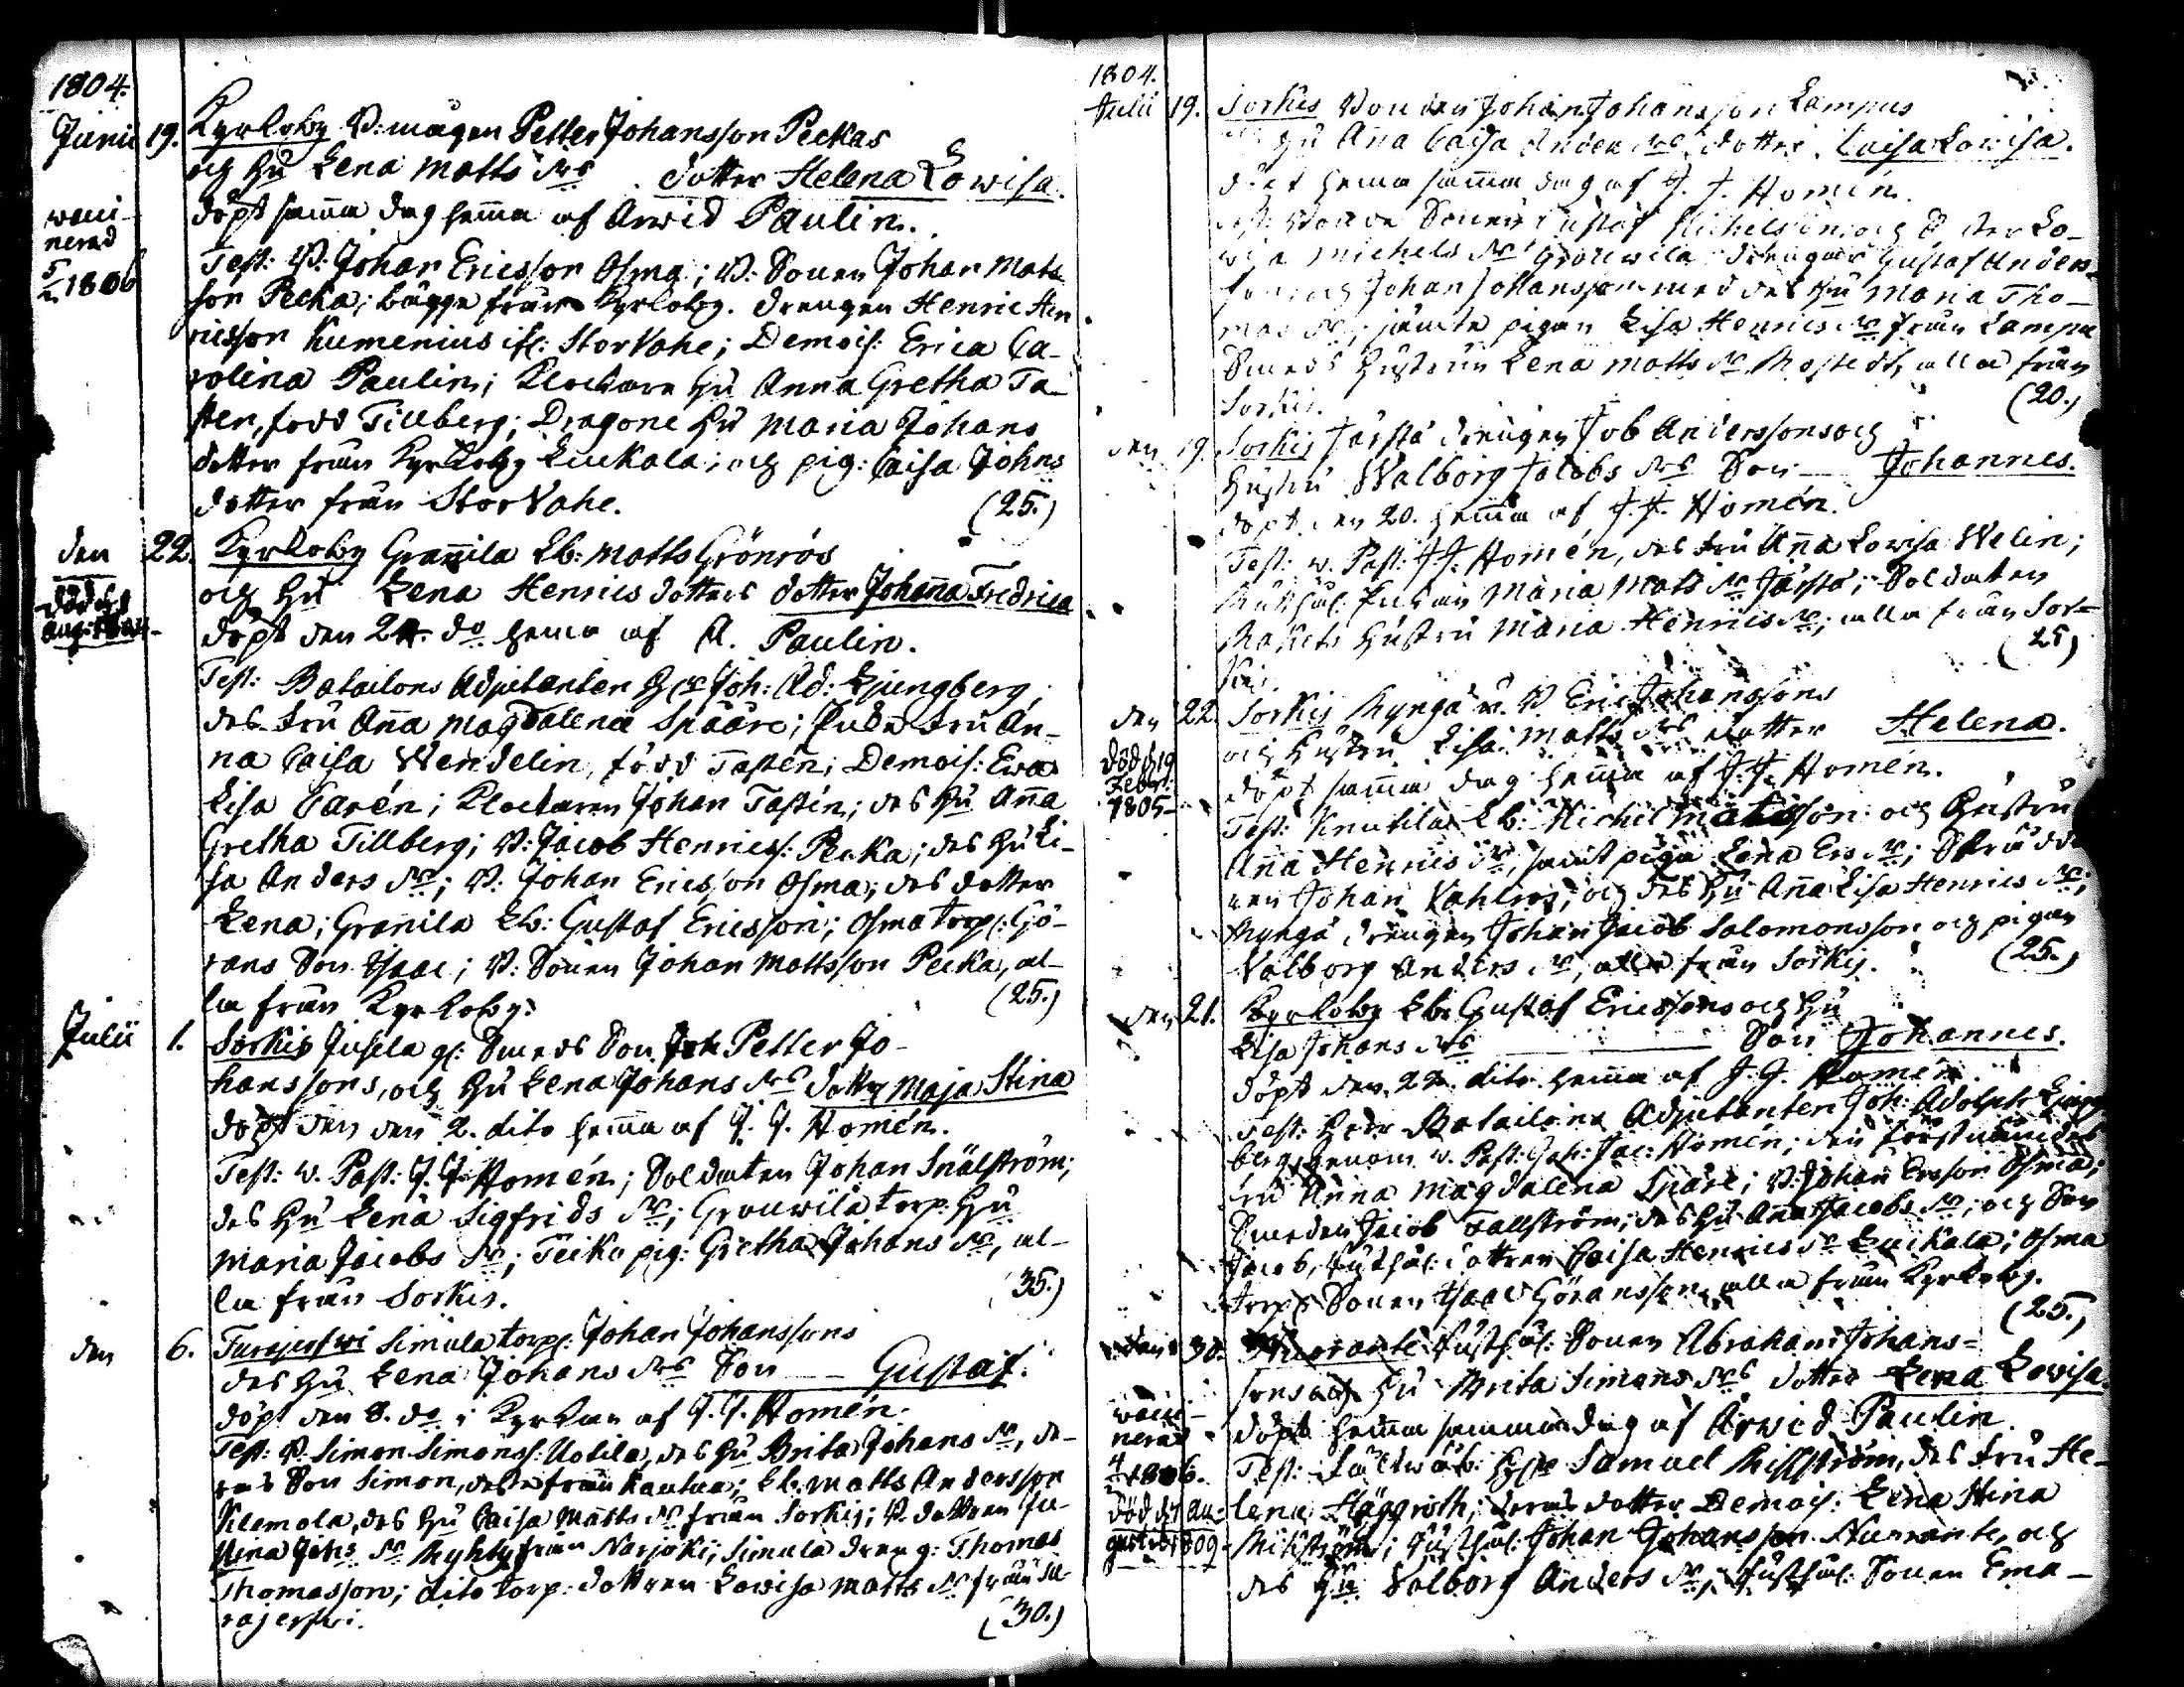 1804.
Junii 19. Kyrkoby B: mågen Petter Johansson Peckas
och Hu Lena Matts drs dotter Helena Lowisa.
vacci-
nerad
1806
döpt samma dag hemma af Arwid Paulin.
Test: B: Johan Ericsson Osma; B: Sonen Johan Mats
son Pecka; bägge från Kyrkoby. drengen Henric Hen
ricsson Kumenius ifr: StorVahe; Demois: Erica Ca-
rolina Paulin; Klockare Hu Anna Gretha Ta-
sten, född Tillberg; Dragone Hu Maria Johans
dotter från Kyrkoby Leukala; och pig: Caisa Johns
dotter från StorVahe. (25.)
den 22. Kyrkoby Grannila Lb: Matts Grönrös
och Hu Lena Henrics dotters dotter Johanna Fredrica
döpt den 24. do hemma af A. Paulin.
Test: Batailons Adjutanten Herr Joh: Ad: Ljungberg;
des Fru Anna Magdalena Spååre; Fru An-
na Caisa Wendelin, född Tastén; Demois: Ewa
Lisa Carén; Klockaren Johan Tastén; des Hu Anna
Gretha Tillberg; B: Jacob Henrics: Pecka; des Hu Li-
sa Anders dr; B: Johan Ericsson Osma; des dotter
Lena; Grannila Lb: Gustaf Ericsson; Osma torp: Gö-
rans Son Isaac; B: Sonen Johan Mattsson Pecka, al-
la från Kyrkoby. (25.)
Julii 1. Sorkis Jusela gl: Smeds Son Petter Jo-
hanssons, och Hu Lena Johans drs dotter Maja Stina
döpt den den 2. dito hemma af J. J. Homén.
Test: v. Past: J. J. Homén; Soldaten Johan Snälström;
des Hu Lena Sigfrids dr; Grouwila torp: Hu
Maria Jacobs dr; Teiko pig: Gretha Johans dr, al-
la från Sorkis. (35.)
den 6. Simula torp: Johan Johanssons
des Hu Lena Johans drs Son — Gustaf.
döpt den 8. do i Kyrkan af J. J. Homén.
Test: B: Simon Simonss: Uotila, des Hu Brita Johans dr, de-
ras Son Simon, dessa från Kautua; Lb: Matts Andersson
Klemola, des Hu Caisa Matts dr från Sorkis; B. dottren Ju-
Myhty från Narjoki; Simula dreng: Thomas
Thomasson; dito torp: dottren Lowisa Matts dr från Tu-
rajerfwi. (30.)
1804.
Julii 19. Sorkis Bonden Johan Johansson Lampus
Hu Anna Caisa Anders drs dotter Caisa Lowisa.
döpt hemma samma dag af J. J. Homén.
Test: Sonen Gustaf Michelsson, och dotter Lo-
wisa Michels dr Grouwila; drengar Gustaf Anders-
son, och Johan Johansson med des Hu Maria Tho-
mas dr, jämte pigan Lisa Henrics dr från Lampu
Smeds hustrun Lena Matts dr, alla från
Sorkis. (20.)
den 19. Sorkis Järstä drengen Job Anderssons och
hustru Walborg Jacobs drs Son — Johannes.
döpt den 20. hemma af J. J. Homén.
Test: v. Past: J. J. Homén, des Fru Anna Lowisa Welin;
Rusthål: Maria Mats dr Järstä; Soldaten
hustru Maria Henrics dr; alla från Sor-
kis. (25)
den 22. Sorkis Myngä B. Eric Johanssons
och hustru Lisa Matts drs dotter Helena.
död d 19
Febr.
1805
döpt samma dag hemma af J. J. Homén.
Test: Knutila Lb: Michel Matsson och hustru
Anna Henrics dr, samt piga Lena Ers dr; Skrädda
ren Johan Vahlros, och des Hu Anna Lisa Henrics dr;
Myngä drengen Johan Jacob Salomonsson och pigan
Valborg Anders dr, alla från Sorkis. (25.)
den 21. Kyrkoby Lb: Gustaf Ericssons och Hu
Lisa Johans drs — Son Johannes.
döpt den 22. dito hemma af J. J. Homén.
Test: Herr Batailons Adjutanten Joh: Adolph Ljung
berg, genom v. Past: Joh: Jac: Homén; den förstnämdes
Fru Anna Magdalena Spåre; B: Johan Ersson Osma;
Smeden Jacob Tallström; des Hu Anna Jacobs dr; och Son
Jacob, Rusthål: dottren Caisa Henrics dr Leukala; Osma
torp: Sonen Isaac Göransson, alla från Kyrkoby.
(25.)
den 30. Nuorante Rusthål: Sonen Abraham Johans-
sons och Hu Brita Simons drs dotter Lena Lowisa.
vacci-
nerad
1806.
död d 7 au-
gusti 1809
döpt hemma samma dag af Arwid Paulin.
Test: Fältwäb: Herr Samuel Mikström, des Fru He-
lena Häggroth; deras dotter Demois: Lena Stina
Mikström; Rusthål: Johan Johansson Nuorante, och
des Hu Valborg Anders dr; Rusthål: Sonen Ema-